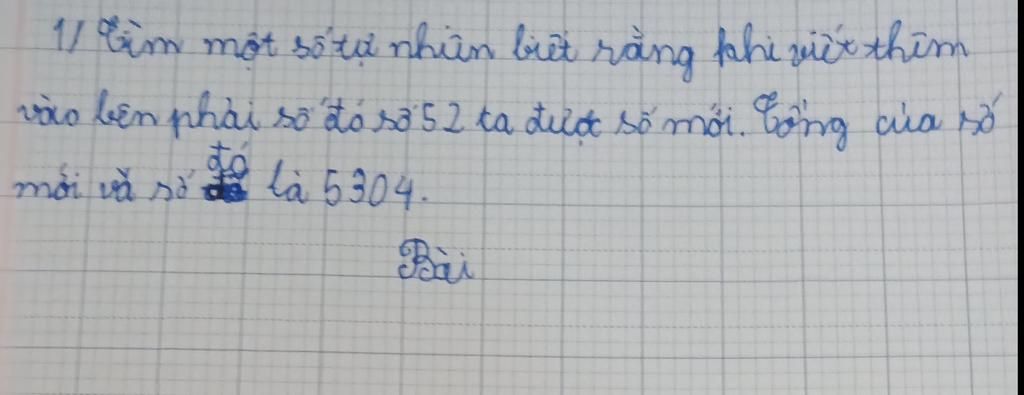 1/ Tìm một số tự nhiên biết rằng khi viết thêm
vào bên phải số đó số 52 ta được số mới. Tổng của số
mới và số đó là 5304.
Bài